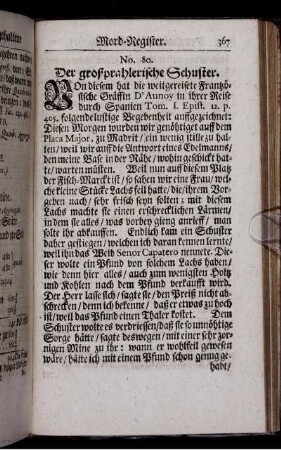 Mord-Register. 367
No. 80.
Der großprahlerische Schuster.
Von diesem hat die weitgereisete Frantzö-
sische Gräffin D'Aunoy in ihrer Reise
durch Spanien Tom. I. Epist. 12. p.
405. folgende lustige Begebenheit auffgezeichnet:
Diesen Morgen wurden wir genöhtiget auff dem
Placa Major, zu Madrit / ein wenig stille zu hal-
ten / weil wir auff die Antwort eines Edelmanns,
den meine Base in der Nähe / wohin geschickt hat-
te / warten müsten. Weil nun auff diesem Platz
der Fisch-Marckt ist / so sahen wir eine Frau / wel-
che kleine Stücke Lachs feil hatte / die / ihrem Vor-
geben nach / sehr frisch seyn solten : mit die-
sem Lachs machte sie einen erschrecklichen Lärmen /
in dem sie alles / was vorbey gieng anrieff / man
solt ihr abkauffen. Endlich kam ein Schuster
daher gestiegen / welchen ich daran kennen lernte /
weil ihn das Weib Senor Capatero nennete. Die-
ser wolte ein Pfund von solchem Lachs haben /
wie denn hier alles / auch zum wenigsten Holtz
und Kohlen nach dem Pfund verkaufft wird.
Der Herr lasse sich / sagte sie / den Preiß nicht ab-
schrecken / denn ich bekenne / daß er etwas zu hoch
ist / weil das Pfund einen Thaler kostet. Dem
Schuster wolte es verdriessen / daß sie so unnöhtige
Sorge hätte / sagte deswegen / mit einer sehr zor-
nigen Mine zu ihr : wann er wohlfeil gewesen
wäre / hätte ich mit einem Pfund schon genug ge-
habt /